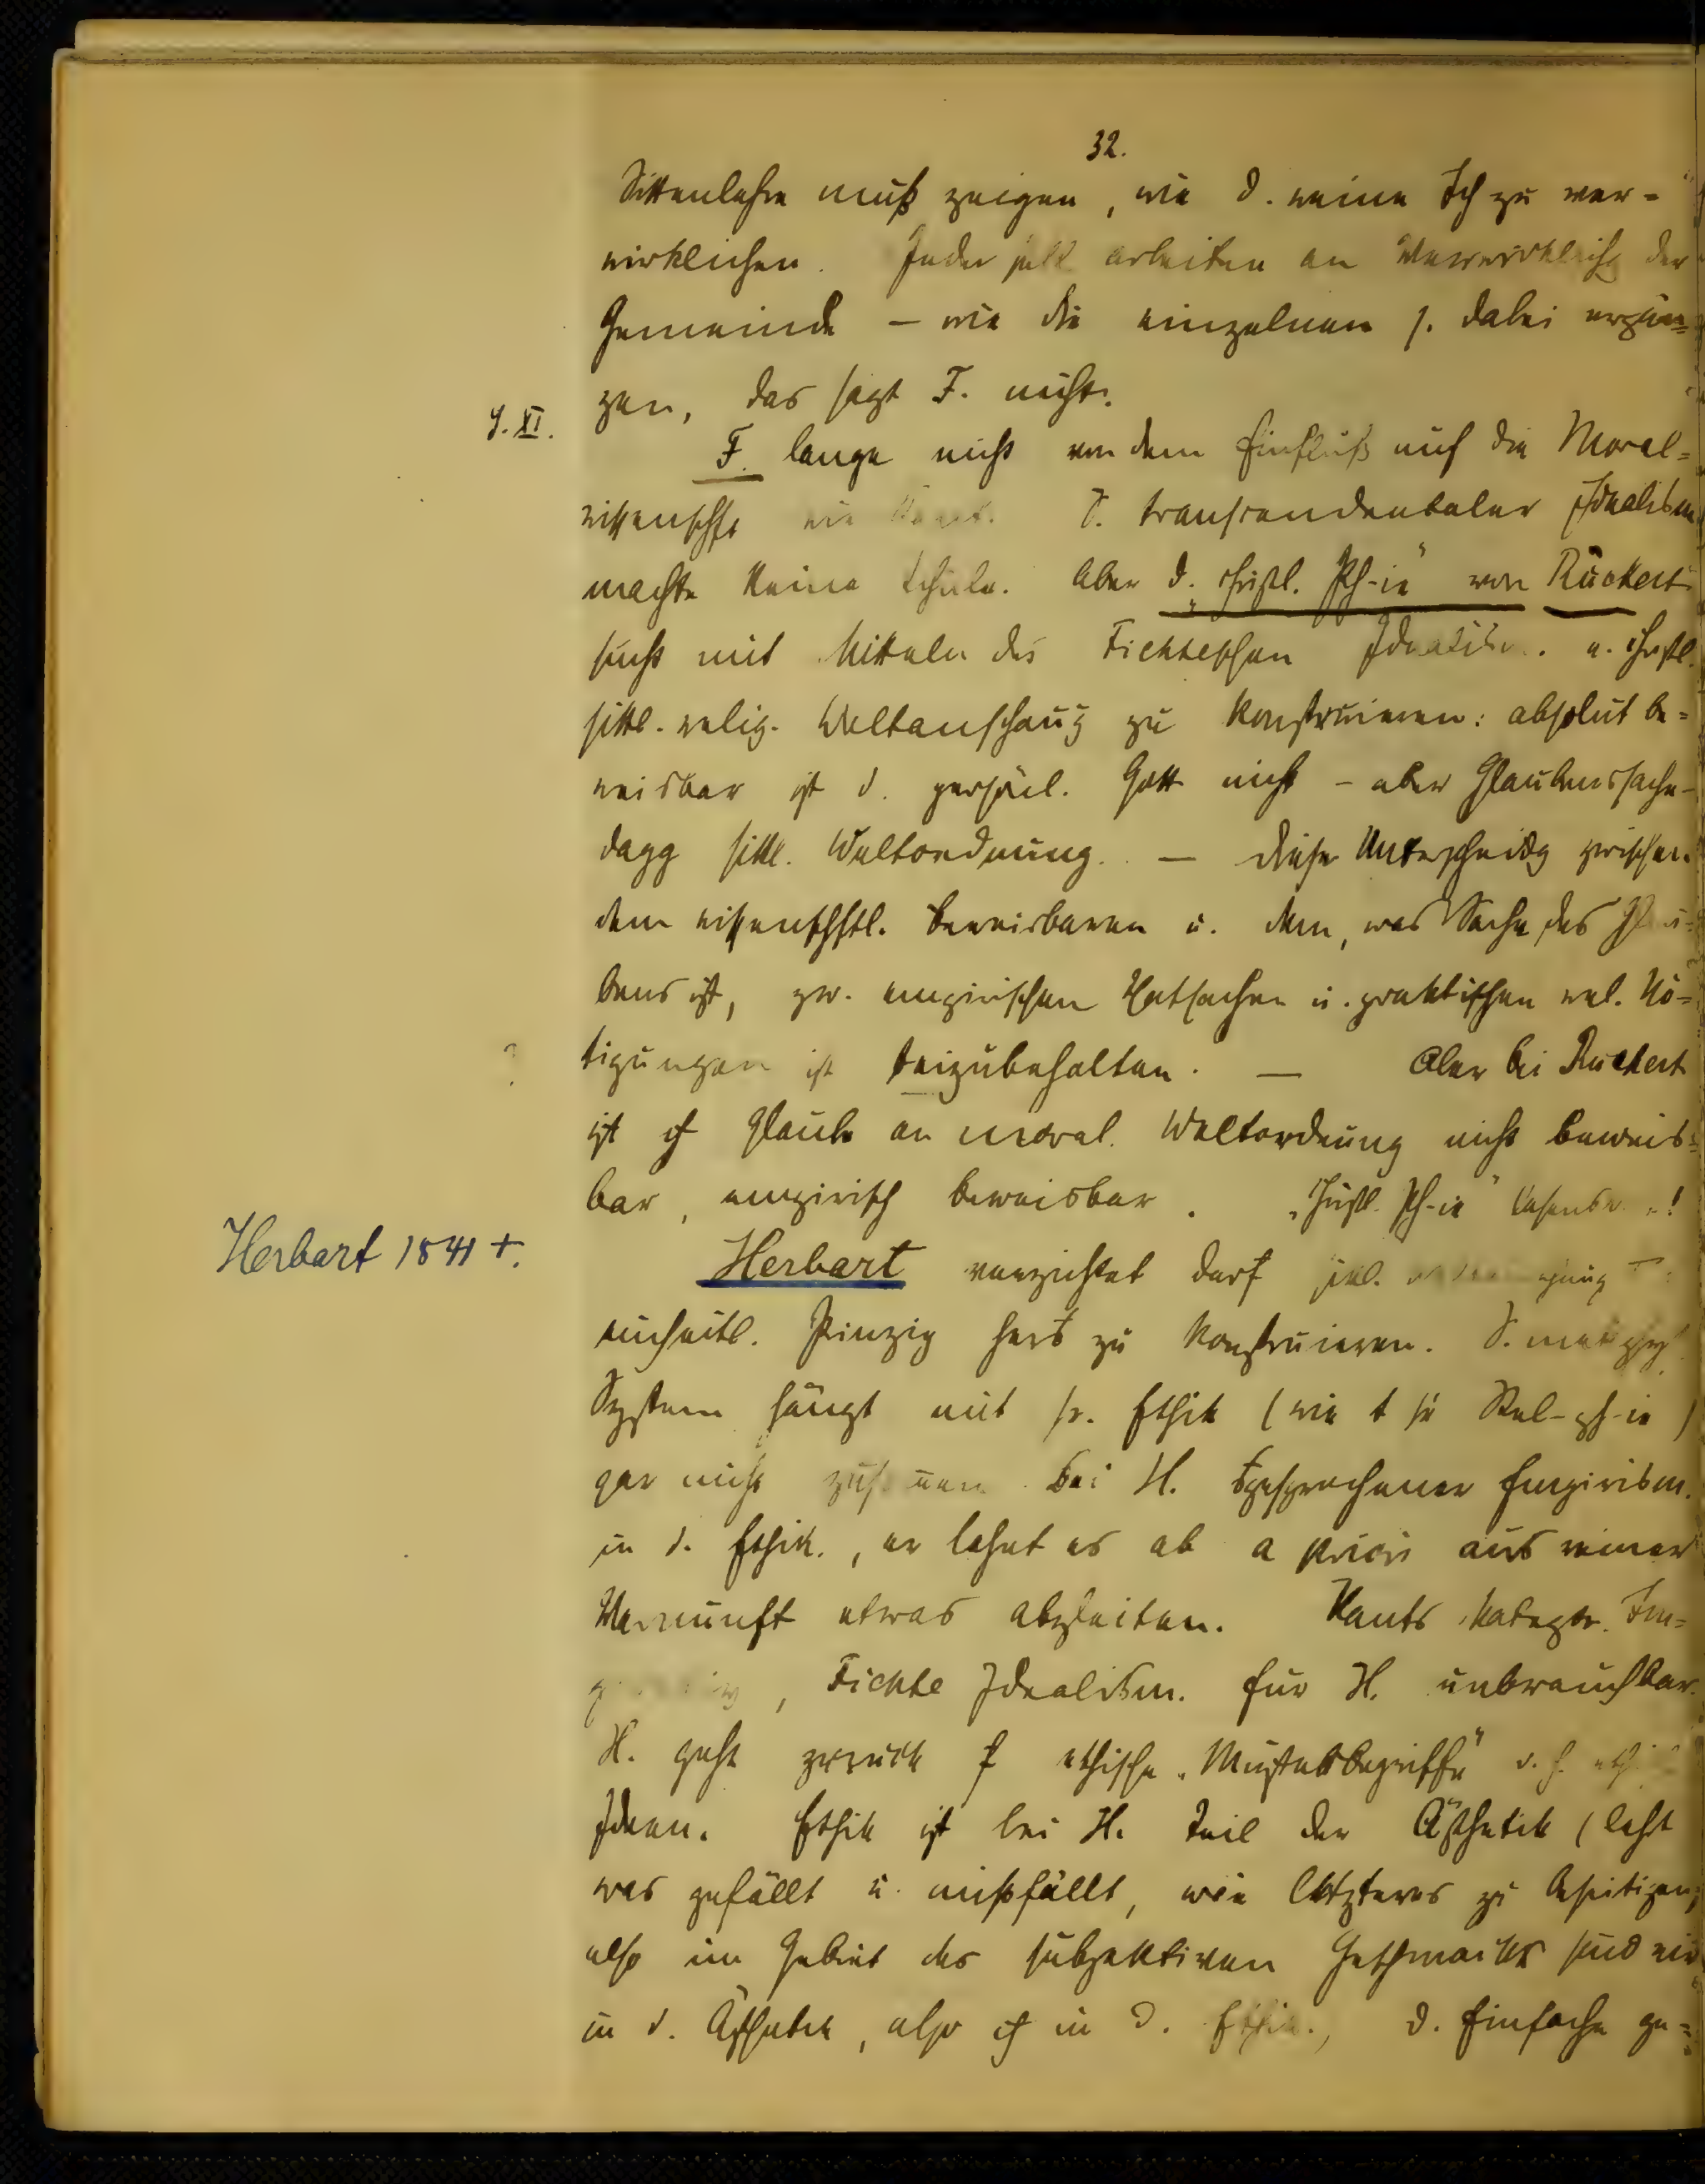 32.
Sittenlehre muß zeigen, wie d. reine Ich zu ver-
wirklichen. Jeder soll arbeiten an Verwirklichg der
Gemeinde – wie die einzelnen s. dabei ergän-
zen, das sagt F. nicht.
9. XI.
F. lange nicht von dem Einfluß auf die Moral-
wissenschft wie Kant. D. transcendentaler Idealism
machte keine Schule. Aber d. „christl. Ph-ie" von Rückert
sucht mit Mitteln des Fichteschen Idealism. e. christl.
sittl. relig. Weltanschaug zu konstruieren: absolut be-
weisbar ist d. persönl. Gott nicht – aber Glaubenssache –
dagg sittl. Weltordnung. – Diese Unterscheidg zwischen
dem wissenschftl. beweisbaren u. dem, was Sache des Glau-
bens ist, zw. empirischen Thatsachen u. praktischen rel. Nö-
? tigungen ist beizubehalten. – Aber bei Rückert
ist Glaube an moral. Weltordnung nicht beweis-
bar, empirisch beweisbar. „Christl. Ph-ie" lesensw.!
Herbart 1841 †.
Herbart verzichtet darf
einheitl. Prinzip heraus zu konstruieren. S. metaphys.
System hängt mit sr. Ethik (wie mit sr Rel-ph-ie)
gar nicht zusammen. Bei H. ausgesprochener Empirism.
in d. Ethik., er lehnt es ab a priori aus reiner
Vernunft etwas abzuleiten. Kants kategor. Im-
perativ, Fichte Idealism. für H. unbrauchbar.
H. geht zurück auf ethische „Musterbegriffe" d. h. eth.
Ideen. Ethik ist bei H. Teil der Ästhetik (lehrt
was gefällt u. mißfällt, wie letzteres zu beseitigen,
also im Gebiet des subjektiven Geschmacks sind wir
in d. Ästhetik, also in d. Ethik., d. Einfache ge-